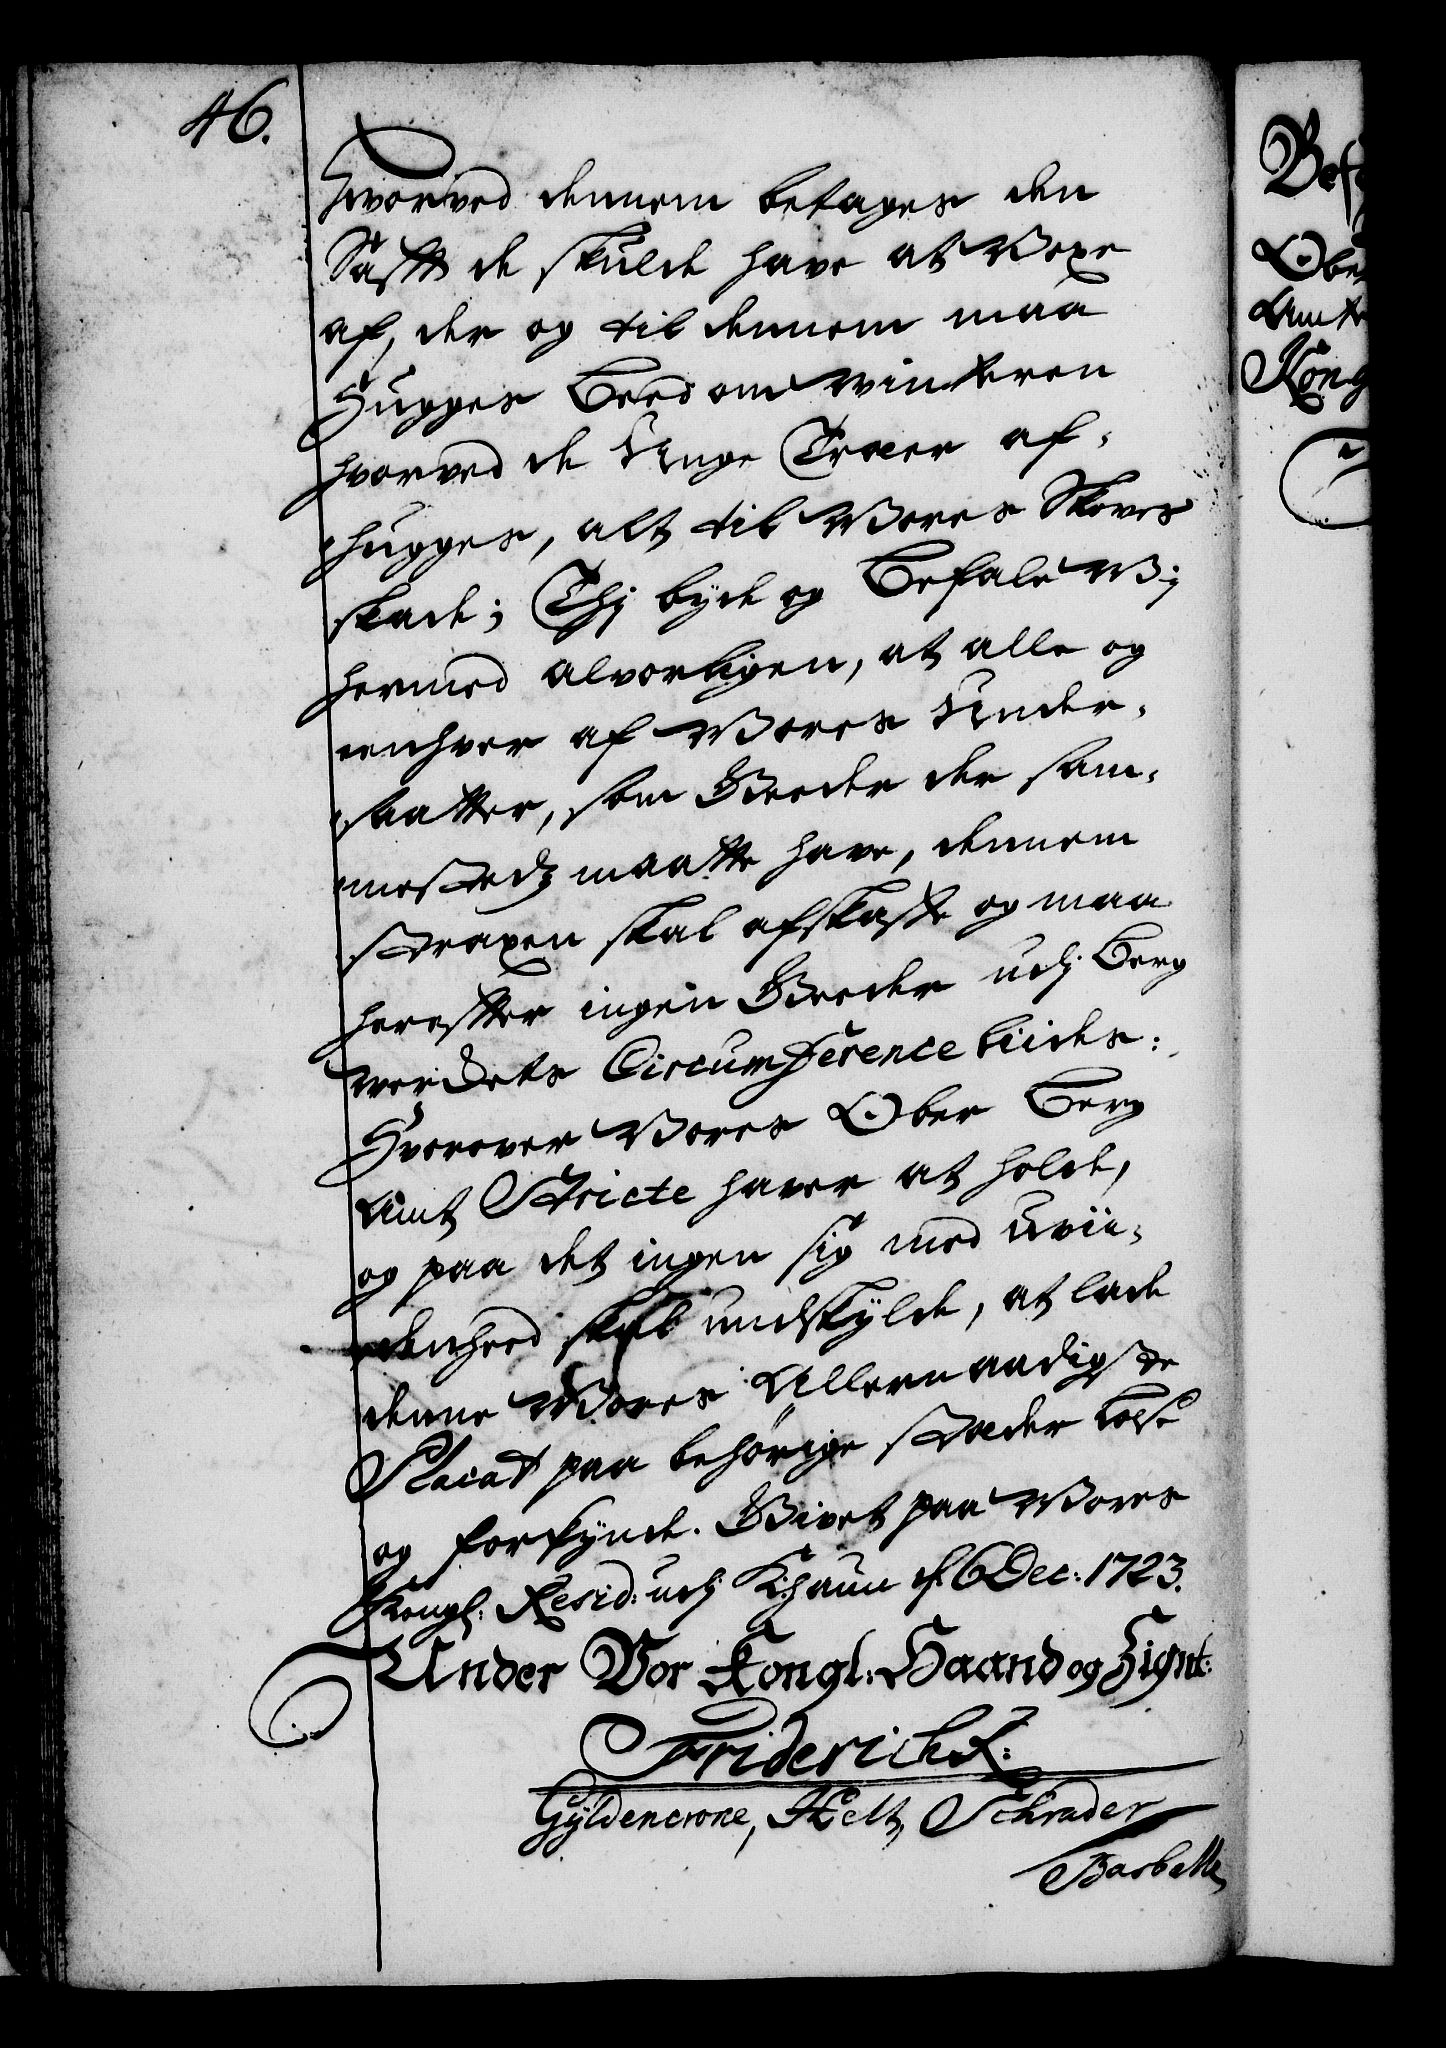 46.
Hvorved dennem betages den
Safft de skulde have at Voxe
af, der og til dennem maa
Hugges Beed om Winteren
hvorved de Unge Træer af-
hugges, alt til Vores Skoves
skade; Thj byde og Befale Vj
hermed alvorligen, at alle og
eenhver af Vores Under-
saatter, som Geeder der sam-
mestedz maatte have, dennem
straxen skal afskaffe og maa
herefter ingen Geeder udj Berg
werckets Circumference liides:
Hvorover Vores Ober Berg
Amt Stricte haver at holde,
og paa det ingen sig med Uvii-
denheed skal undskylde, at lade
denne Vores Allernaadigste
Placat paa behörige stæder læse
og forkynde. Givet paa Vores
Kongl: Resid: udj Khaun d. 6 Dec: 1723.
Under Vor Kongl: Haand og Zignt:
Friderich R:
Gyldencrone, Helt, Schrader
Basballe
Bef
Ober
Amt
Kong